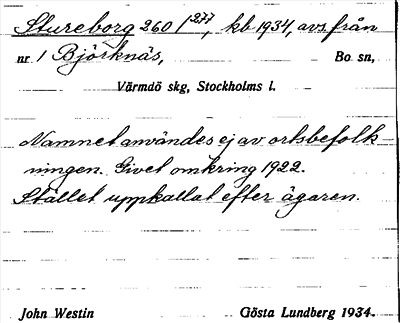 Stureborg 260 1²⁷⁷, kb 1934, avs från
nr 1 Björknäs, Bo sn,
Värmdö skg, Stockholms l.
Namnet användes ej av ortsbefolk-
ningen. Givet omkring 1922.
Stället uppkallat efter ägaren.
John Westin Gösta Lundberg 1934.